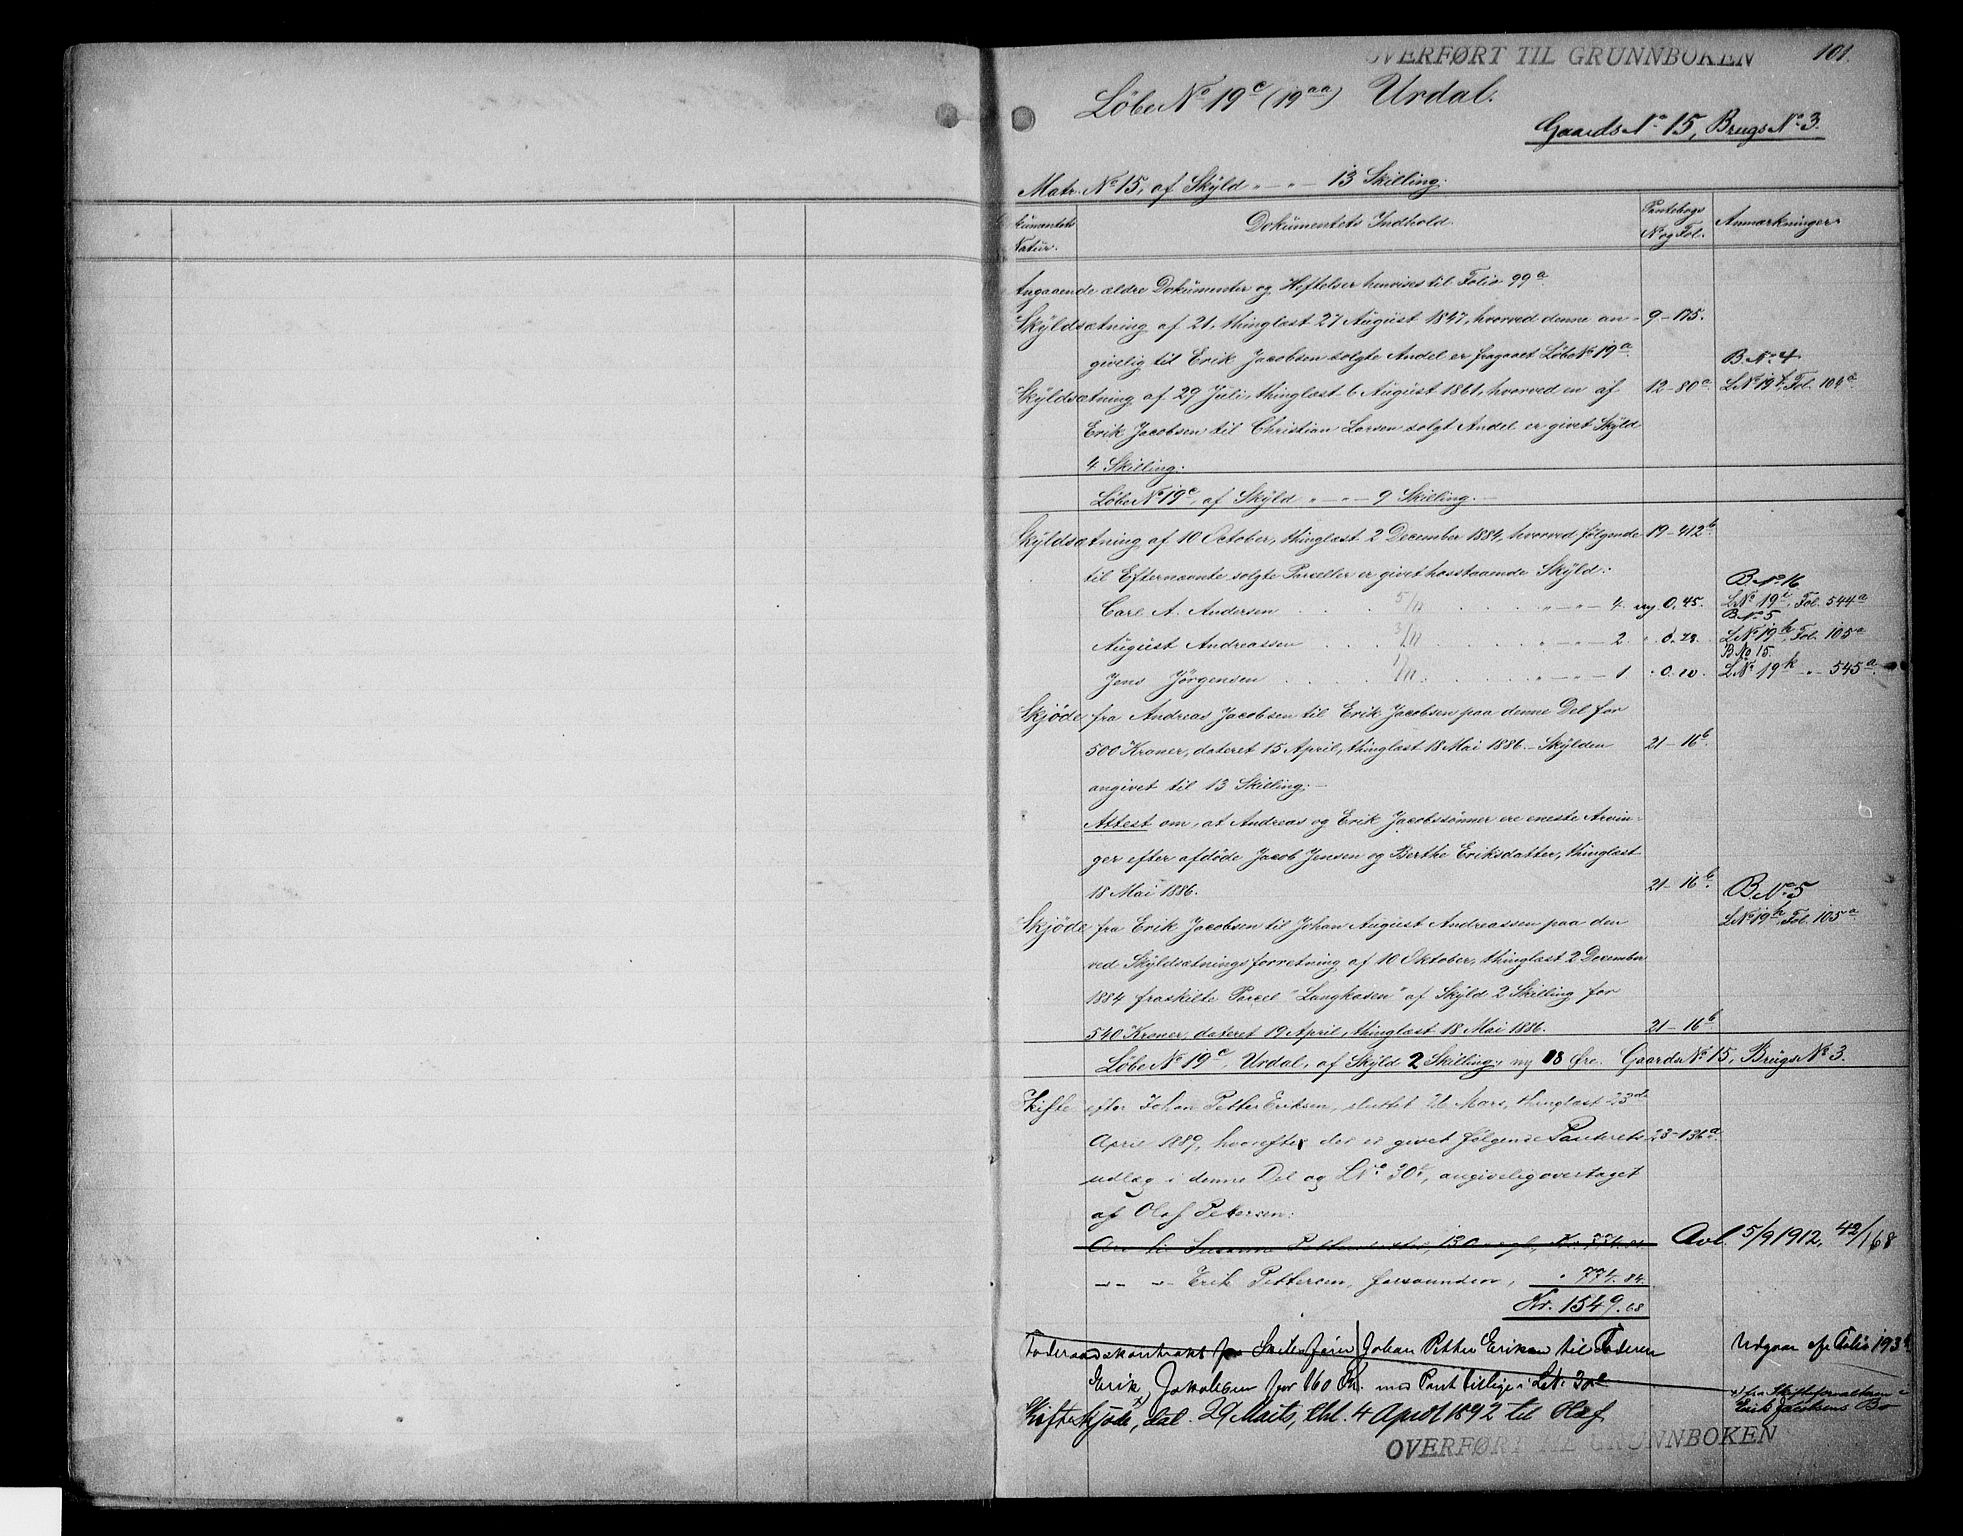 OVERFØRT TIL GRUNNBOKEN
101.
Løbe No 19c (19aa) Urdal.
Gaards No 15, Brugs No 3.
Matr. No 15, af Skyld " — " — 13 Skilling.
Dokumentets Indhold.
Pantebogs
No og Fol.
Anmærkninger.
Natur.
Angaaende ældre Dokumenter og Heftelser henvises til Folio 99a.
Skyldsætning af 21, thinglæst 27 August 1847, hvorved denne an- 9-175.
givelig til Erik Jacobsen solgte Andel er fragaaet Løbe No 19a.
B No 4
Skyldsætning af 29 Juli, thinglæst 6 August 1861, hvorved en af 12-80a L No 19f, Fol. 104a.
Erik Jacobsen til Christian Larsen solgt Andel er givet Skyld
4 Skilling.
Løbe No 19c, af Skyld " — " — 9 Skilling. —
Skyldsætning af 10 October, thinglæst 2 December 1884, hvorved følgende 19-412b.
til Efternævnte solgte Parceller er givet hosstaaende Skyld:
B No 16
Carl A. Andersen . . . 5/11 . . . " — " — 4. ny 0.45. L No 19i, Fol. 544a
B No 5
August Andreassen . . . 3/11 . . . " — " — 2. " 0.23. L No 19h, Fol. 105a
B No 15.
Jens Jørgensen . . . 1/11 . . . " — " — 1. " 0.10 L No 19k " — 545a.
Skjøde fra Andreas Jacobsen til Erik Jacobsen paa denne Del for
500 Kroner, dateret 15 April, thinglæst 18 Mai 1886. - Skylden 21-16b.
angivet til 13 Skilling. —
Attest om, at Andreas og Erik Jacobssønner ere eneste Arvin-
ger efter afdøde Jacob Jensen og Berthe Eriksdatter, thinglæst
18 Mai 1886. 21-16b. B No 5
Skjøde fra Erik Jacobsen til Johan August Andreassen paa den L No 19h, Fol. 105a.
ved Skyldsætningsforretning af 10 Oktober, thinglæst 2 December
1884 fraskilte Parcel "Langkasen" af Skyld 2 Skilling for
540 Kroner, dateret 19 April, thinglæst 18 Mai 1886. 21-16b
Løbe No 19c, Urdal, af Skyld 2 Skilling, ny 08 Øre. Gaards No 15, Brugs No 3.
Skifte efter Johan Petter Eriksen, sluttet 26 Mars, thinglæst 23de
April 1889, hvorefter der er givet følgende Panterets 23-136a.
udlæg i denne Del og L No 30, angivelig overtaget
af Olaf Pettersen:
Avl. 5/9 1912, 42/168
" — " — Erik Pettersen, forsvunden, " 774.84.
Kr. 1549.68
Føderaadskontrakt fra Johan Petter Eriksen til Faderen Udgaar cfr Folio 193
Erik Jakobsen for 160 Kr. med Pant tillige i L No 30
x) fra Skifteforvalteren i
Erik Jacobsens Bo
Skifteskjøde x), dat. 29 Marts, thl. 4 April 1892 til Olaf
OVERFØRT TIL GRUNNBOKEN